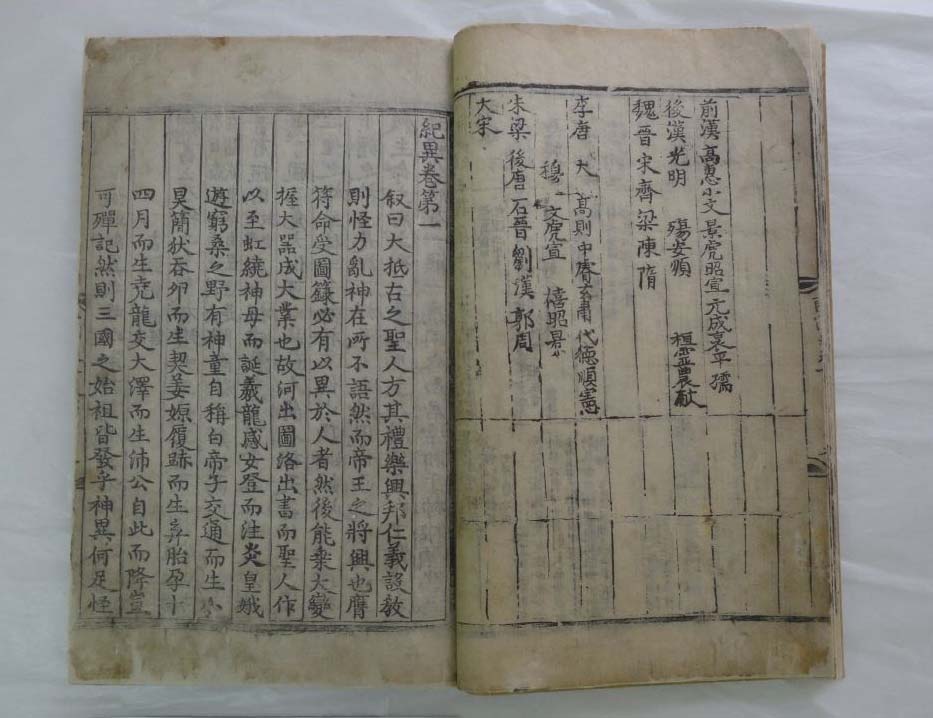 前漢 高惠小文景虎昭宣元成哀平孺
後漢光明 殤安順 桓霊農献
魏晉宋齊梁陳隋
李唐 大高則中睿玄肅代德順憲
穆 文虎宣 僖昭景
朱梁 後唐 石晉 劉漢 郭周
大宋
紀異卷第一
叙曰大抵古之聖人方其禮樂興邦仁義設教
則怪力亂神在所不語然而帝王之將興也膺
符命受圖籙必有以異於人者然後能乘大變
握大器成大業也故河出圖洛出書而聖人作
以至虹繞神母而誕羲龍感女登而注炎皇娥
遊窮桑之野有神童自稱白帝子交通而生小
昊簡狄吞卵而生契姜嫄履跡而生弃胎孕十
四月而生堯龍交大澤而生沛公自此而降豈
可殫記然則三國之始祖皆發乎神異何足怪